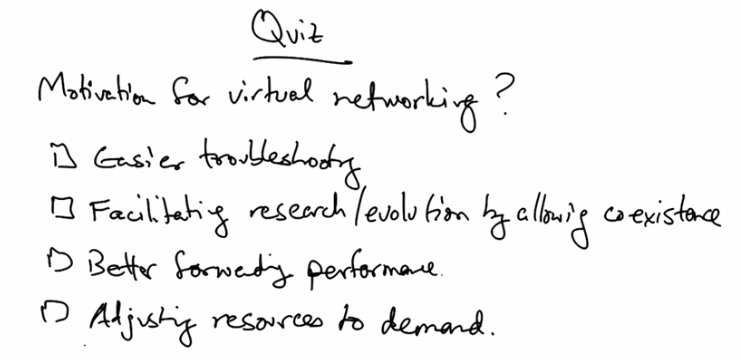 Quiz
Motivation for virtual networking?
Easier troubleshooting
Facilitating research/evolution by allowing coexistence
Better forwarding performance.
Adjusting resources to demand.